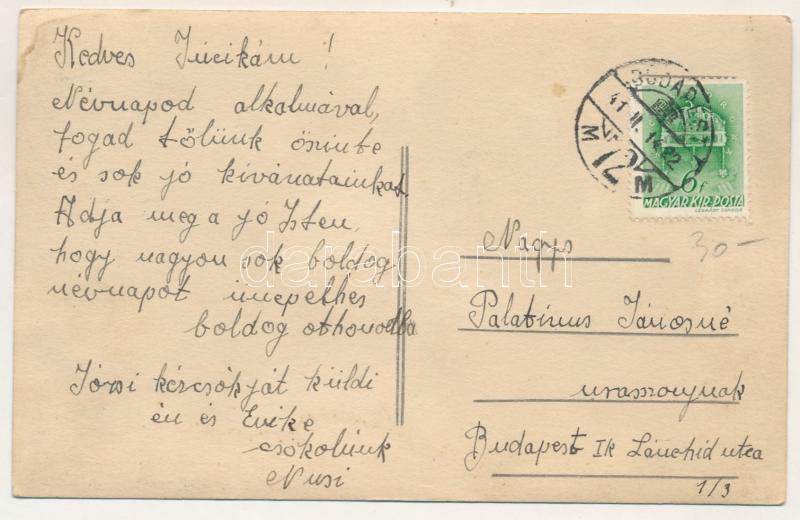 Kedves Jucikám !
Névnapod alkalmával,
fogad tőlünk őszinte
és sok jó kívánatainkat.
Adja meg a jó Isten,
hogy nagyon sok boldog
névnapot ünnepelhes
boldog othonodba
Józsi kézcsókját küldi
én és Evike
csókolunk
Nusi
BUDAPEST
41
72
M M
6f
MAGYAR KIR. POSTA
30 —
Nagys
Palatinus Jánosné
uraszonynak
Budapest Ik Lánchid utca
1/3
darabanth